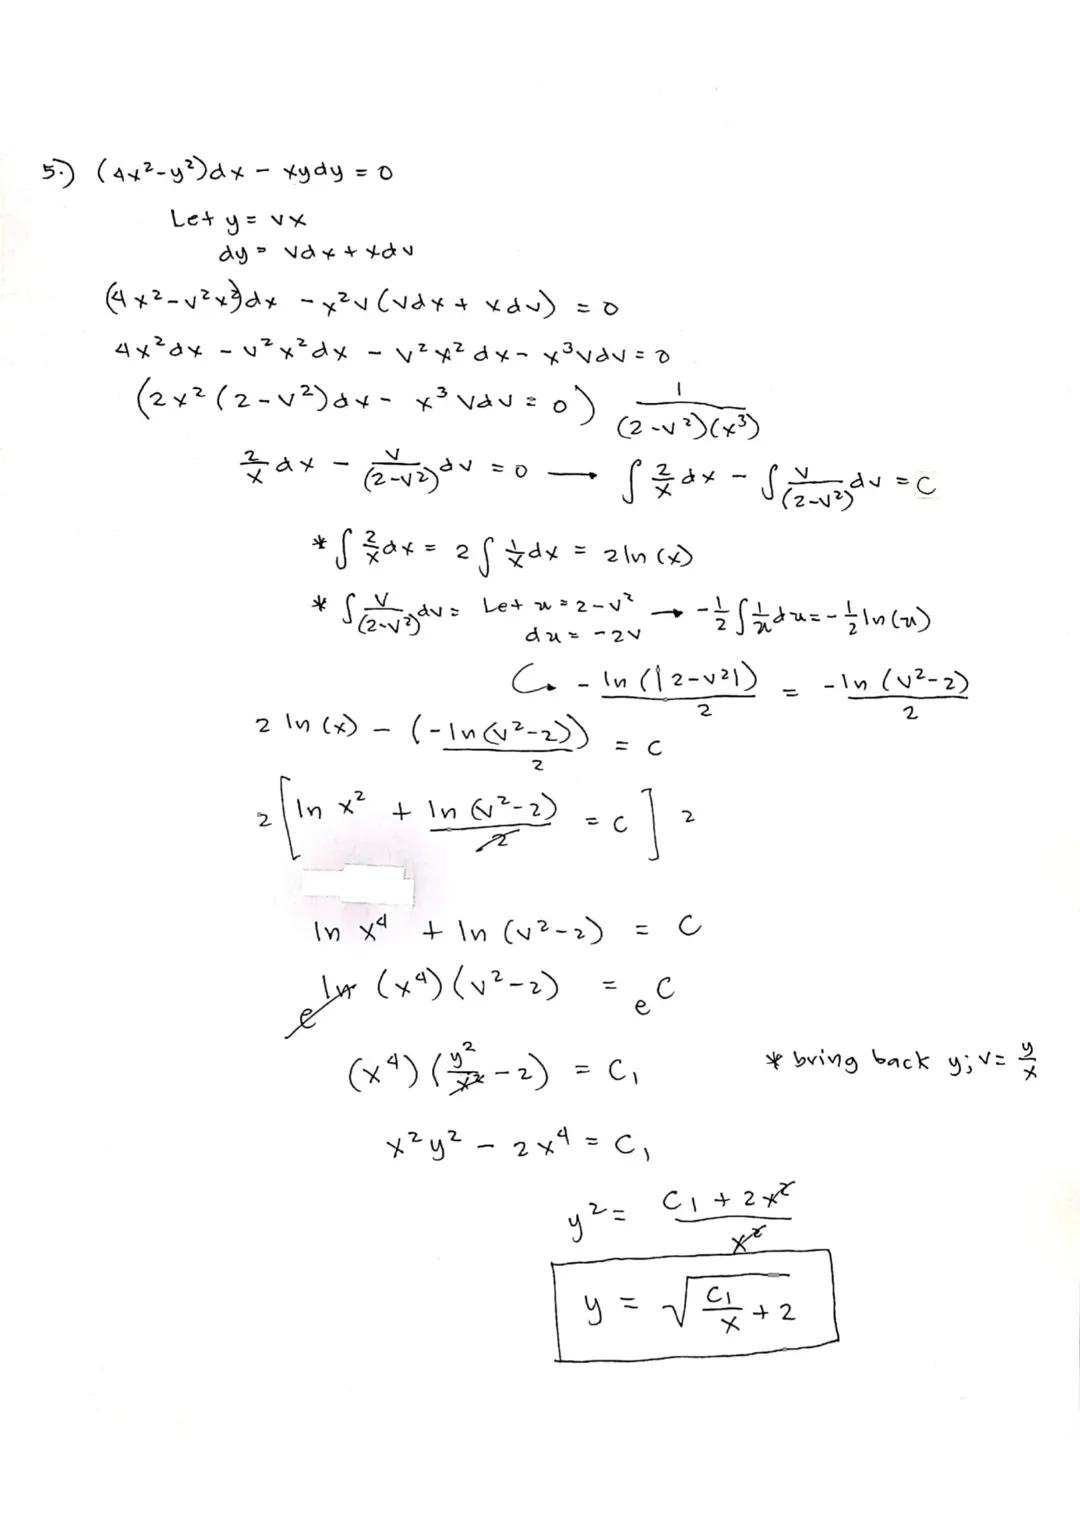 5.) (4x²-y²)dx - xydy = 0
Let y = vx
dy = vdx + xdv
(4x²-v²x²)dx - x²v(vdx + xdv) = 0
4x²dx - v²x²dx - v²x²dx - x³vdv = 0
(2x²(2-v²)dx - x³vdv = 0) 1/((2-v²)(x³))
2/x dx - v/(2-v²) dv = 0 → ∫ 2/x dx - ∫ v/(2-v²) dv = C
* ∫ 2/x dx = 2 ∫ 1/x dx = 2 ln (x)
* ∫ v/(2-v²) dv = Let u = 2-v² → -1/2 ∫ 1/u du = -1/2 ln(u)
du = -2v
↳ - ln(|2-v²|)/2 = -ln(v²-2)/2
2 ln(x) - (-ln(v²-2)/2) = C
2 [ln x² + ln(v²-2)/2 = C] 2
ln x⁴ + ln(v²-2) = C
e^ln (x⁴)(v²-2) = e^C
(x⁴)(y²/x² - 2) = C₁ * bring back y; v = y/x
x²y² - 2x⁴ = C₁
y² = (C₁ + 2x²)/x²
y = √(C₁/x + 2)